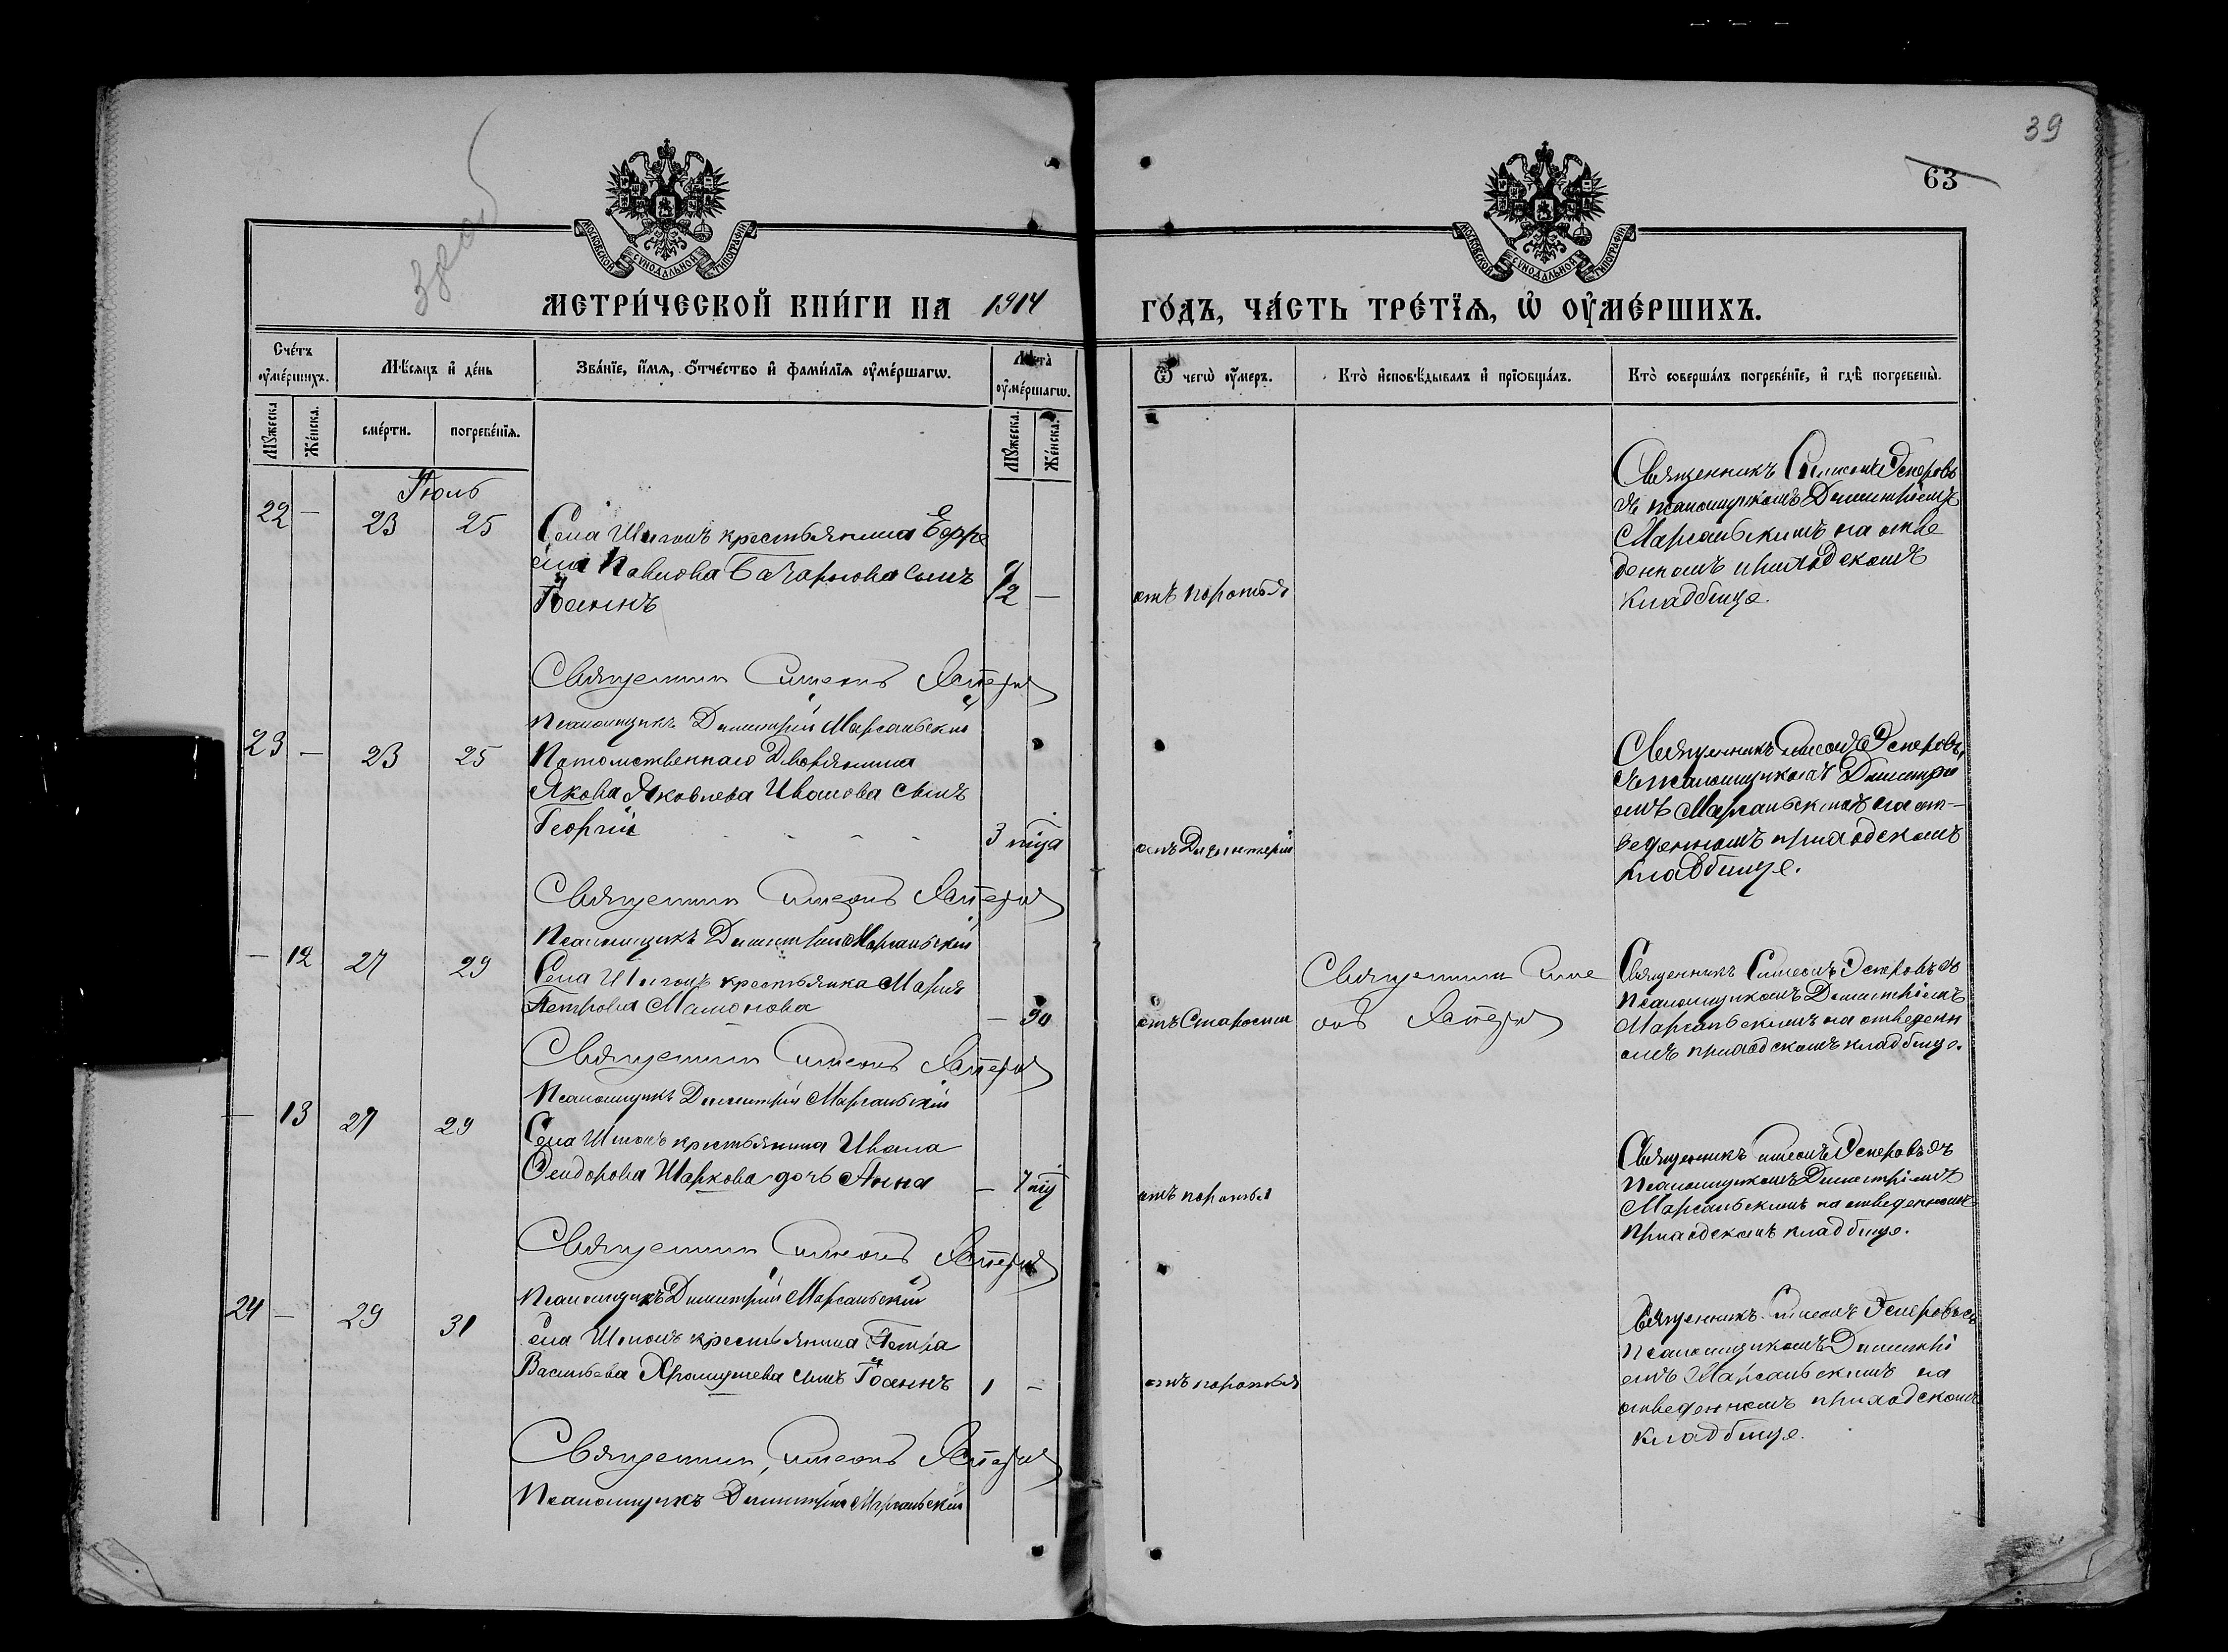 39
63
МОСКОВСКОЙ СУНОДАЛЬНОЙ ТИПОГРАФІИ
МОСКОВСКОЙ СУНОДАЛЬНОЙ ТИПОГРАФІИ
МЕТРИ́ЧЕСКОЙ КНИ́ГИ НА 1914
ГО́ДЪ, ЧА́СТЬ ТРЕ́ТЇѦ, Ѡ҆ ОУ҆МЕ́РШИХЪ.
Сче́тъ оу҆ме́ршихъ.
Мѣ́сяцъ и҆ де́нь
Зва́нїе, и҆́мѧ, ѻ҆́тчество и҆ фами́лїѧ оу҆ме́ршагѡ.
Лѣта̀ оу҆ме́ршагѡ.
Ѿ чегѡ̀ оу҆́меръ.
Кто̀ и҆сповѣ́дывалъ и҆ прїѻбща́лъ.
Кто̀ соверша́лъ погребе́нїе, и҆ гдѣ̀ погребены̀.
Мꙋ́жеска
Же́нска.
сме́рти.
погребе́нїѧ.
Мꙋ́жеска.
Же́нска.
Іюль
22 — 23 25
Села крестьянина Ефре
ма Павлова сынъ
Іоаннъ ½ —
отъ поротья
Священникъ Симеонъ Эсперовъ
съ псаломщикомъ Димитріемъ
Марсальскимъ на отве
денномъ приходскомъ
кладбище.
Священник Симеонъ Эсперовъ
Псаломщикъ Димитрій Марсальскій
23 — 23 25
Потомственнаго Дворянина
Якова Яковлева Иванова сынъ
Георгій 3 м̃ца
отъ Дизентеріи
Священникъ Симеонъ Эсперовъ,
съ псаломщикомъ Димитрі
емъ Марсальскимъ на от-
веденномъ приходскомъ
кладбище.
Священник Симеонъ Эсперовъ
Псаломщикъ Димитрій Марсальскій
— 12 27 29
Села крестьянка Марія
Петрова Мамонова — 90
отъ Старости
Священник Симе
онъ Эсперовъ
Священникъ Симеонъ Эсперовъ съ
Псаломщикомъ Димитріемъ
Марсальскимъ на отведенн
омъ приходскомъ кладбище.
Священник Симеонъ Эсперовъ
Псаломщикъ Димитрій Марсальскій
— 13 27 29
Села крестьянина Ивана
Феодорова Шаркова дочь Анна — 7 м̃ц
отъ поротья
Священникъ Симеонъ Эсперовъ съ
Псаломщикомъ Димитріемъ
Марсальскимъ на отведенномъ
приходскомъ кладбище.
Священник Симеонъ Эсперовъ
Псаломщикъ Димитрій Марсальскій
24 — 29 31
Села крестьянина Петра
Васильева сынъ Іоаннъ 1 —
отъ поротья
Священникъ Симеонъ Эсперовъ съ
псаломщикомъ Димитрі
емъ Марсальскимъ на
отведенномъ приходскомъ
кладбище.
Священник Симеонъ Эсперовъ
Псаломщикъ Димитрій Марсальскій